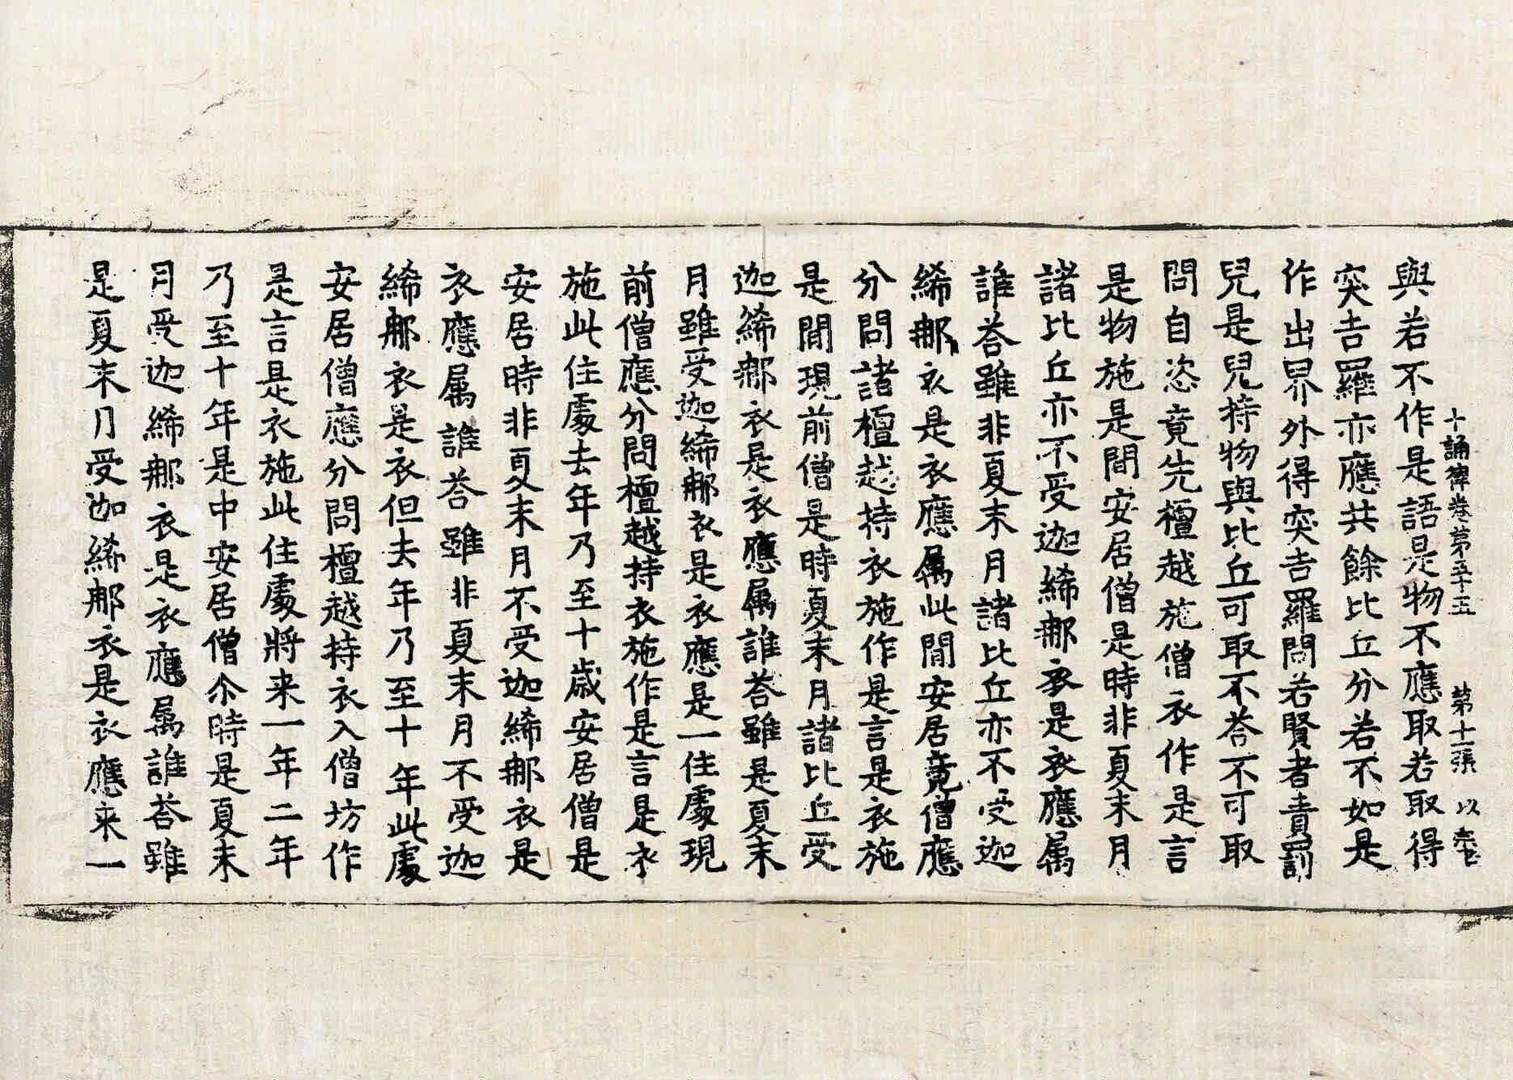 十誦律卷第五十五　第十一張　以
與若不作是語是物不應取若取得
突吉羅亦應共餘比丘分若不如是
作出界外得突吉羅問若賢者責罰
兒是兒持物與比丘可取不荅不可取
問自恣竟先檀越施僧衣作是言
是物施是間安居僧是時非夏末月
諸比丘亦不受迦絺那衣是衣應属
誰荅雖非夏末月諸比丘亦不受迦
絺那衣是衣應属此間安居竟僧應
分問諸檀越持衣施作是言是衣施
是間現前僧是時夏末月諸比丘受
迦絺那衣是衣應属誰荅雖是夏末
月雖受迦絺那衣是衣應是一住處現
前僧應分問檀越持衣施作是言是衣
施此住處去年乃至十歲安居僧是
安居時非夏末月不受迦絺那衣是
衣應属誰荅雖非夏末月不受迦
絺那衣是衣但去年乃至十年此處
安居僧應分問檀越持衣入僧坊作
是言是衣施此住處將来一年二年
乃至十年是中安居僧尒時是夏末
月受迦絺那衣是衣應属誰荅雖
是夏末月受迦絺那衣是衣應来一